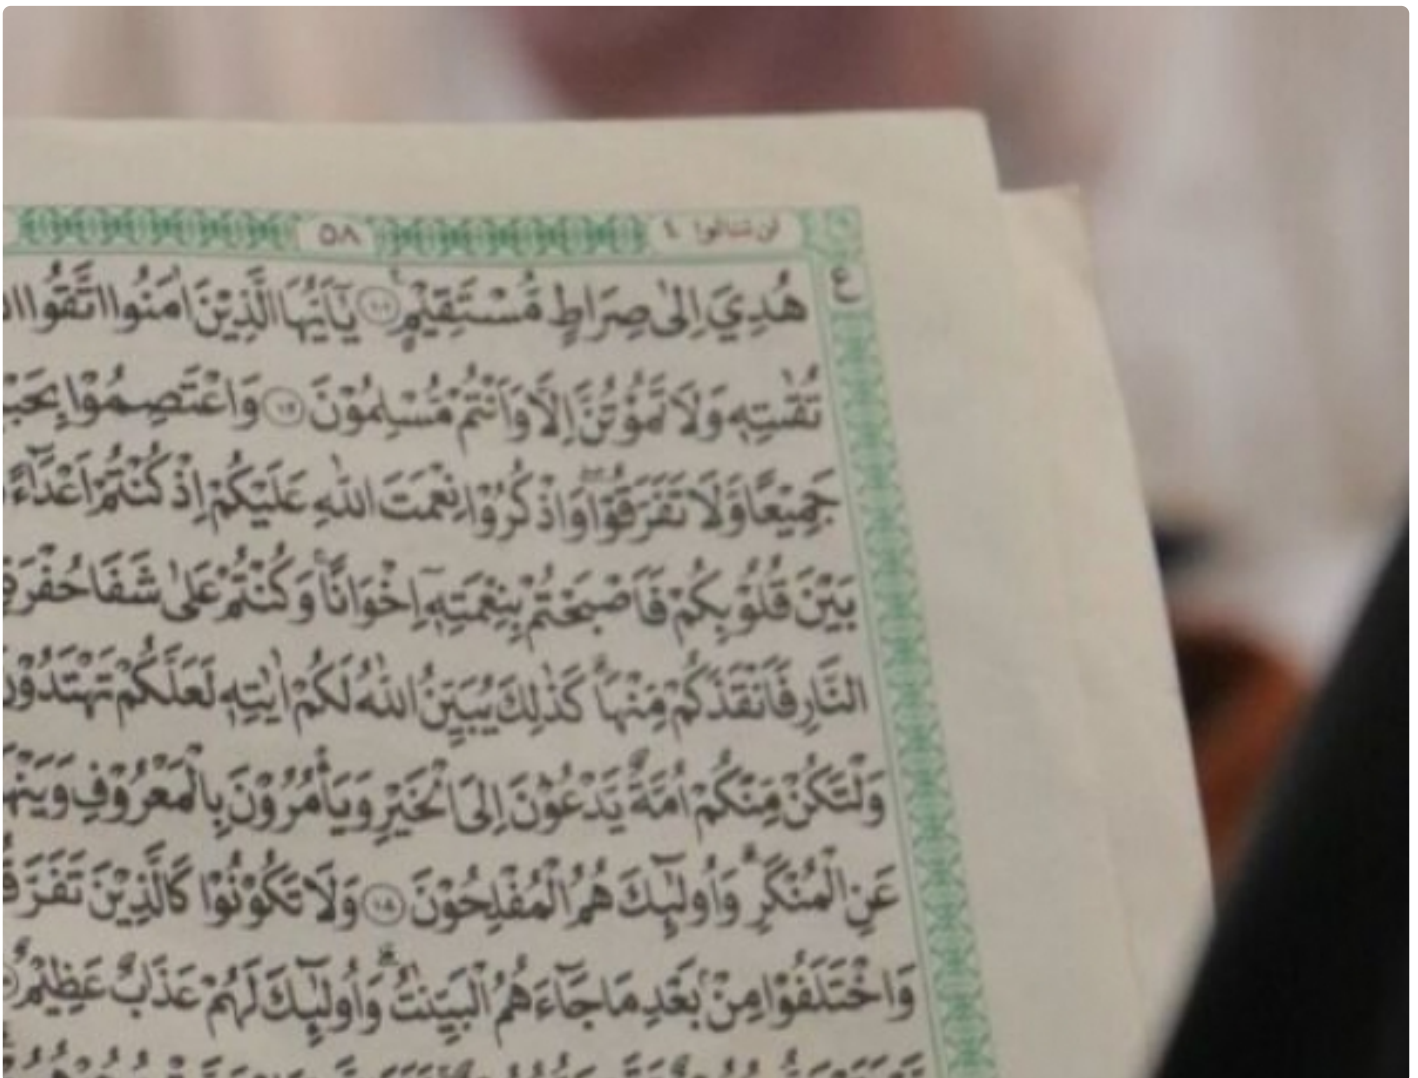 لن تنالوا ٤ ٥٨
ع
هُدِيَ اِلٰى صِرَاطٍ مُّسْتَقِيْمٍ يٰٓاَيُّهَا الَّذِيْنَ اٰمَنُوا اتَّقُوا
تُقٰىتِهٖ وَلَا تَمُوْتُنَّ اِلَّا وَاَنْتُمْ مُّسْلِمُوْنَ وَاعْتَصِمُوْا
جَمِيْعًا وَّلَا تَفَرَّقُوْا وَاذْكُرُوْا نِعْمَتَ اللّٰهِ عَلَيْكُمْ اِذْ كُنْتُمْ اَعْدَآءً
بَيْنَ قُلُوْبِكُمْ فَاَصْبَحْتُمْ بِنِعْمَتِهٖٓ اِخْوَانًا وَكُنْتُمْ عَلٰى شَفَا
النَّارِ فَاَنْقَذَكُمْ مِّنْهَا كَذٰلِكَ يُبَيِّنُ اللّٰهُ لَكُمْ اٰيٰتِهٖ لَعَلَّكُمْ تَهْتَدُوْنَ
وَلْتَكُنْ مِّنْكُمْ اُمَّةٌ يَّدْعُوْنَ اِلَى الْخَيْرِ وَيَأْمُرُوْنَ بِالْمَعْرُوْفِ
عَنِ الْمُنْكَرِ وَاُولٰٓئِكَ هُمُ الْمُفْلِحُوْنَ وَلَا تَكُوْنُوْا كَالَّذِيْنَ
وَاخْتَلَفُوْا مِنْۢ بَعْدِ مَا جَآءَهُمُ الْبَيِّنٰتُ وَاُولٰٓئِكَ لَهُمْ عَذَابٌ عَظِيْمٌ